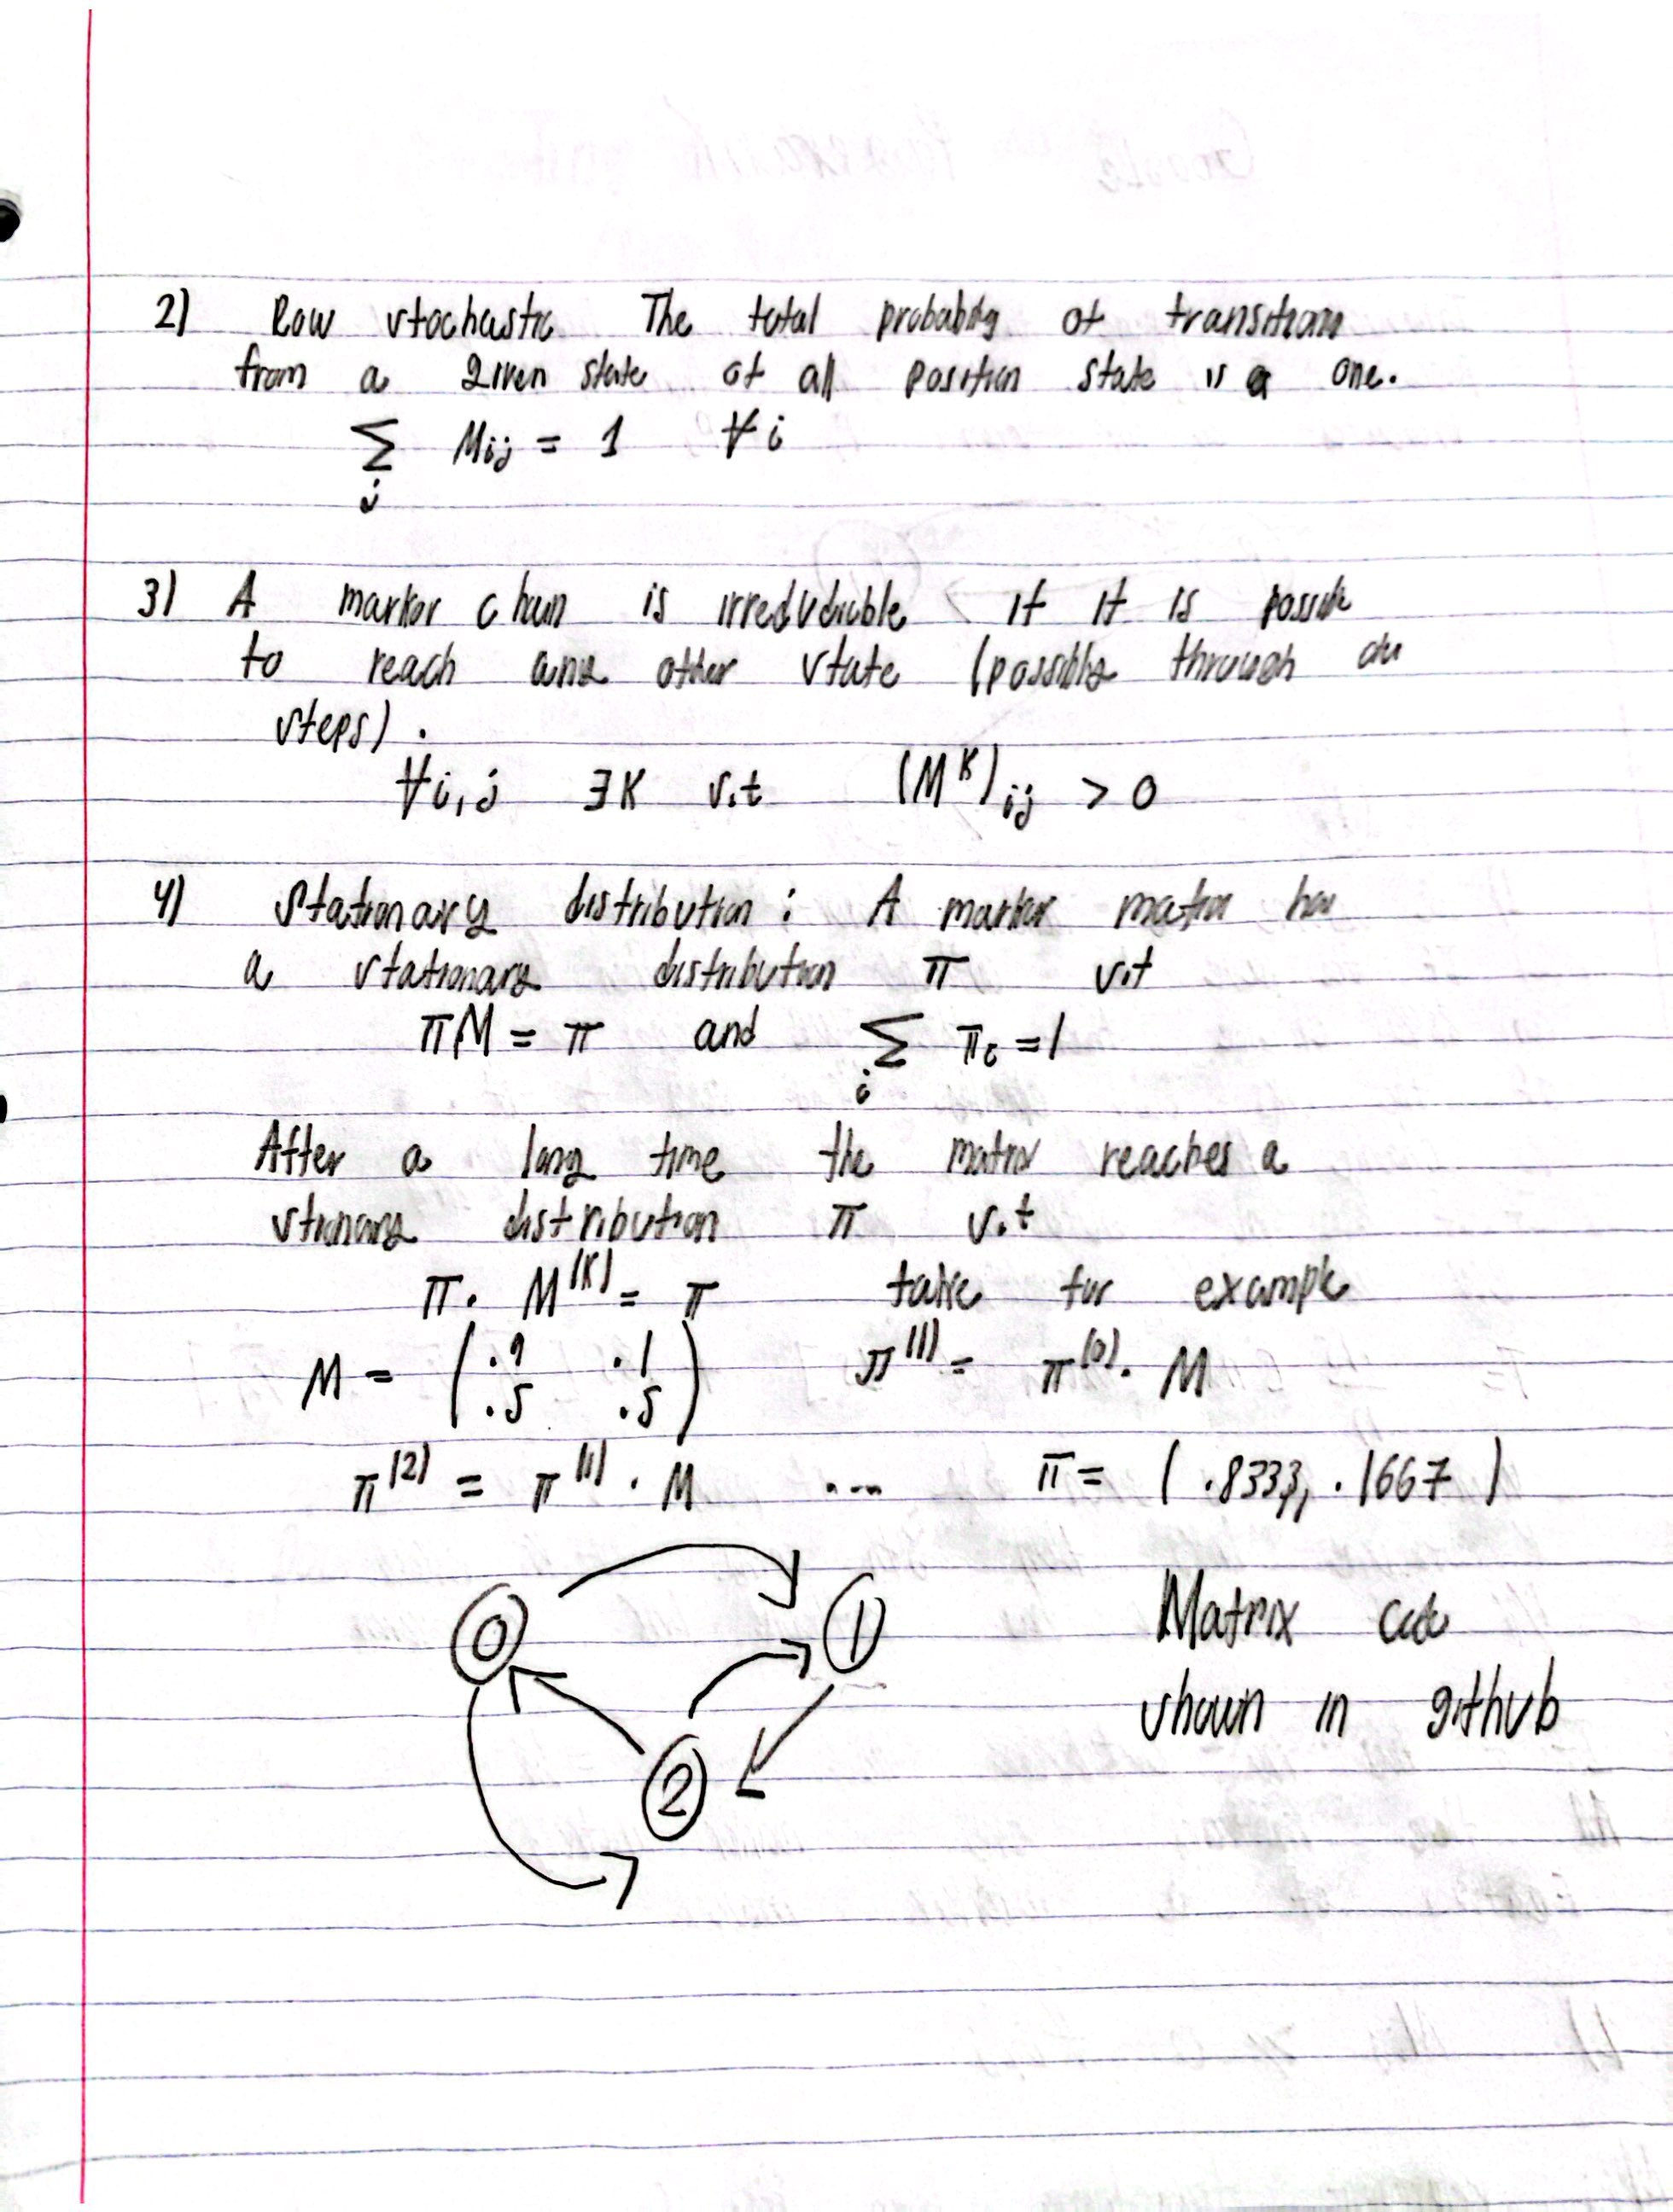 2) Row stochastic The total probability of transitions
from a given state of all position state is a one.
∑ Mij = 1 ∀ i
j
3) A markov chain is irreducible if it is possible
to reach any other state (possibly through
steps).
∀i,j ∃K s.t (M^K)ij > 0
4) Stationary distribution: A markov matrix has
a stationary distribution π s.t
πM = π and ∑ πi = 1
i
After a long time the matrix reaches a
stionary distribution π s.t
π. M^(K) = π take for example
M = (.9 .1
.5 .5) π^(1) = π^(0). M
π^(2) = π^(1) . M ... π = (.8333, .1667)
0 1
Matrix code
2
shown in github